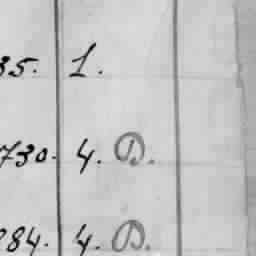 35. 1.
730. 4. D.
284. 4. D.